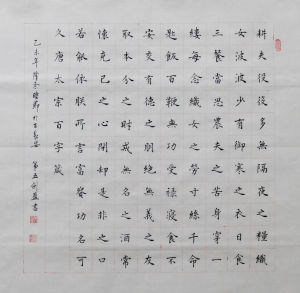 耕夫役役多無隔夜之糧織
女波波少有御寒之衣日食
三餐當思農夫之苦身穿一
縷每念織女之勞寸絲千命
匙飯百鞭無功受祿寢食不
安交有德之朋絕無義之友
取本分之財戒無名之酒常
懷克己之心閉卻是非之口
若能依朕所言富貴功名可
久唐太宗百字箴
乙未年隆冬時節於古長安 第五劍書